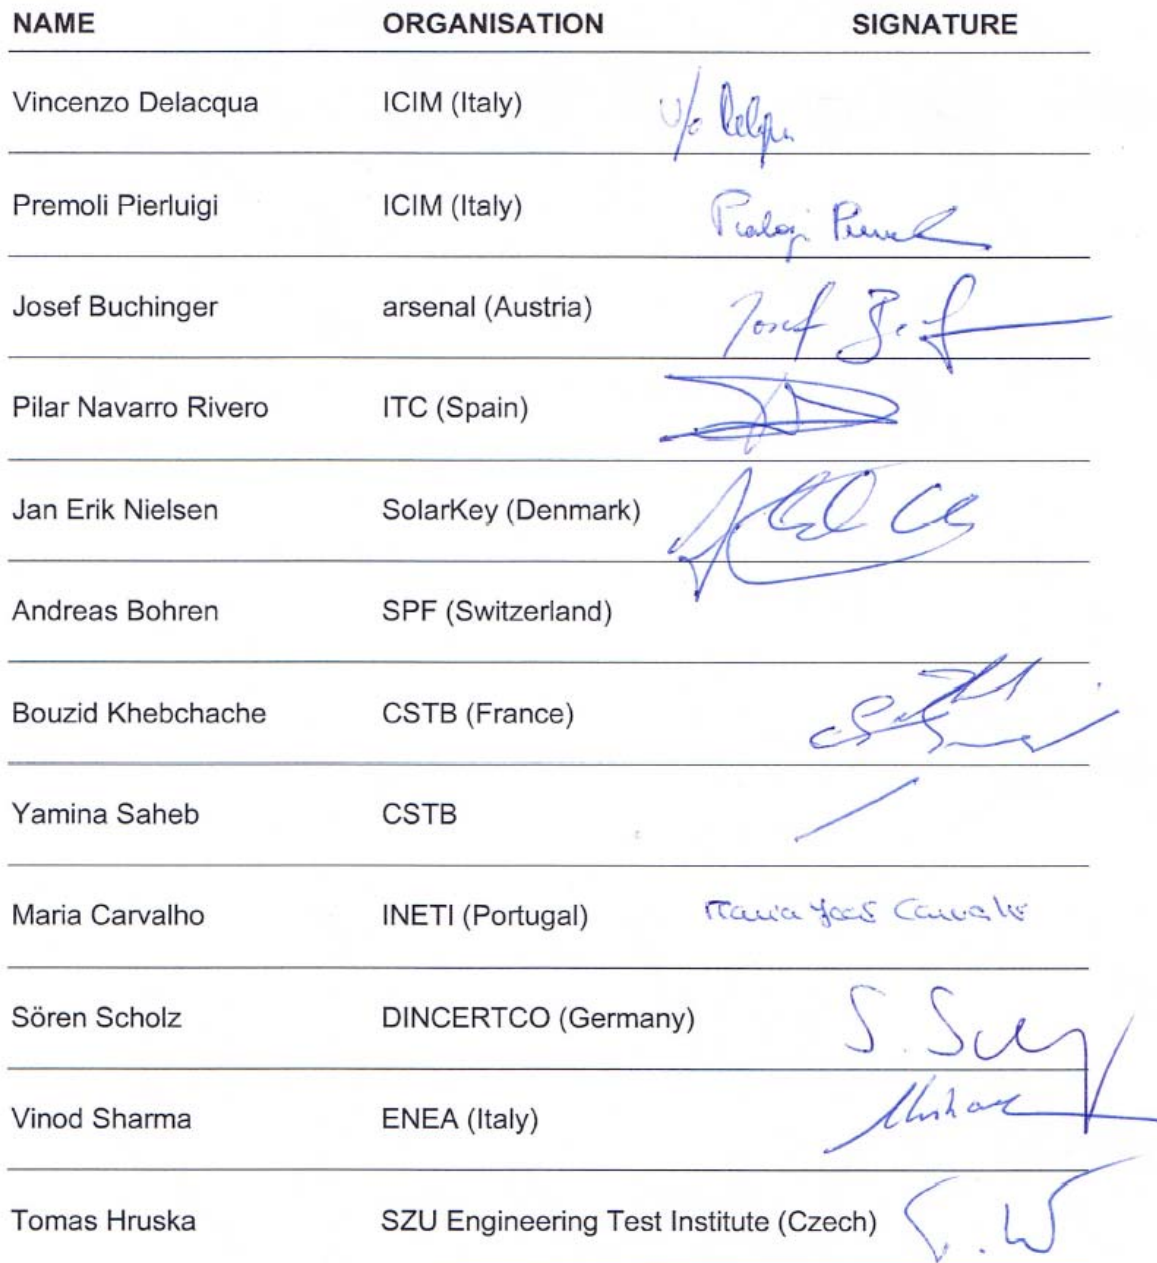 NAME ORGANISATION SIGNATURE
Vincenzo Delacqua ICIM (Italy)
Premoli Pierluigi ICIM (Italy)
Josef Buchinger arsenal (Austria) Josef
Pilar Navarro Rivero ITC (Spain)
Jan Erik Nielsen SolarKey (Denmark)
Andreas Bohren SPF (Switzerland)
Bouzid Khebchache CSTB (France)
Yamina Saheb CSTB
Maria Carvalho INETI (Portugal) Maria João Carvalho
Sören Scholz DINCERTCO (Germany) S.
Vinod Sharma ENEA (Italy)
Tomas Hruska SZU Engineering Test Institute (Czech)